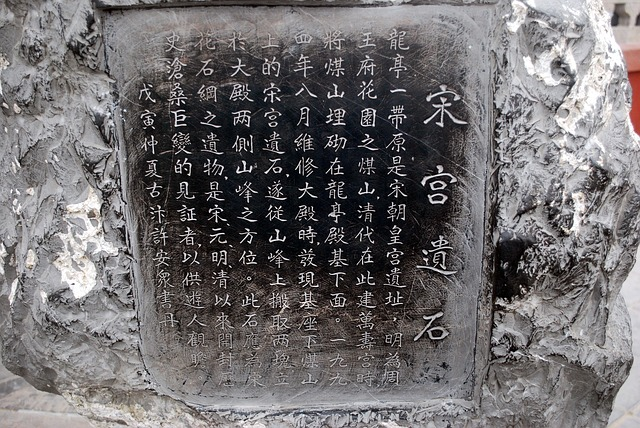 宋宮遺石
龍亭一帶原是宋朝皇宮遺址，明為周
王府花園之煤山，清代在此建萬壽宮時
將煤山埋砌在龍亭殿基下面。一九九
四年八月維修大殿時，發現基座下煤山
上的宋宮遺石，遂従山峰上搬取两塊立
於大殿两側山峰之方位。此石應為宋
花石綱之遺物，是宋、元、明、清以來開封歷
史滄桑巨變的見証者，以供遊人觀瞻
戊寅仲夏古汴許安衆書丹